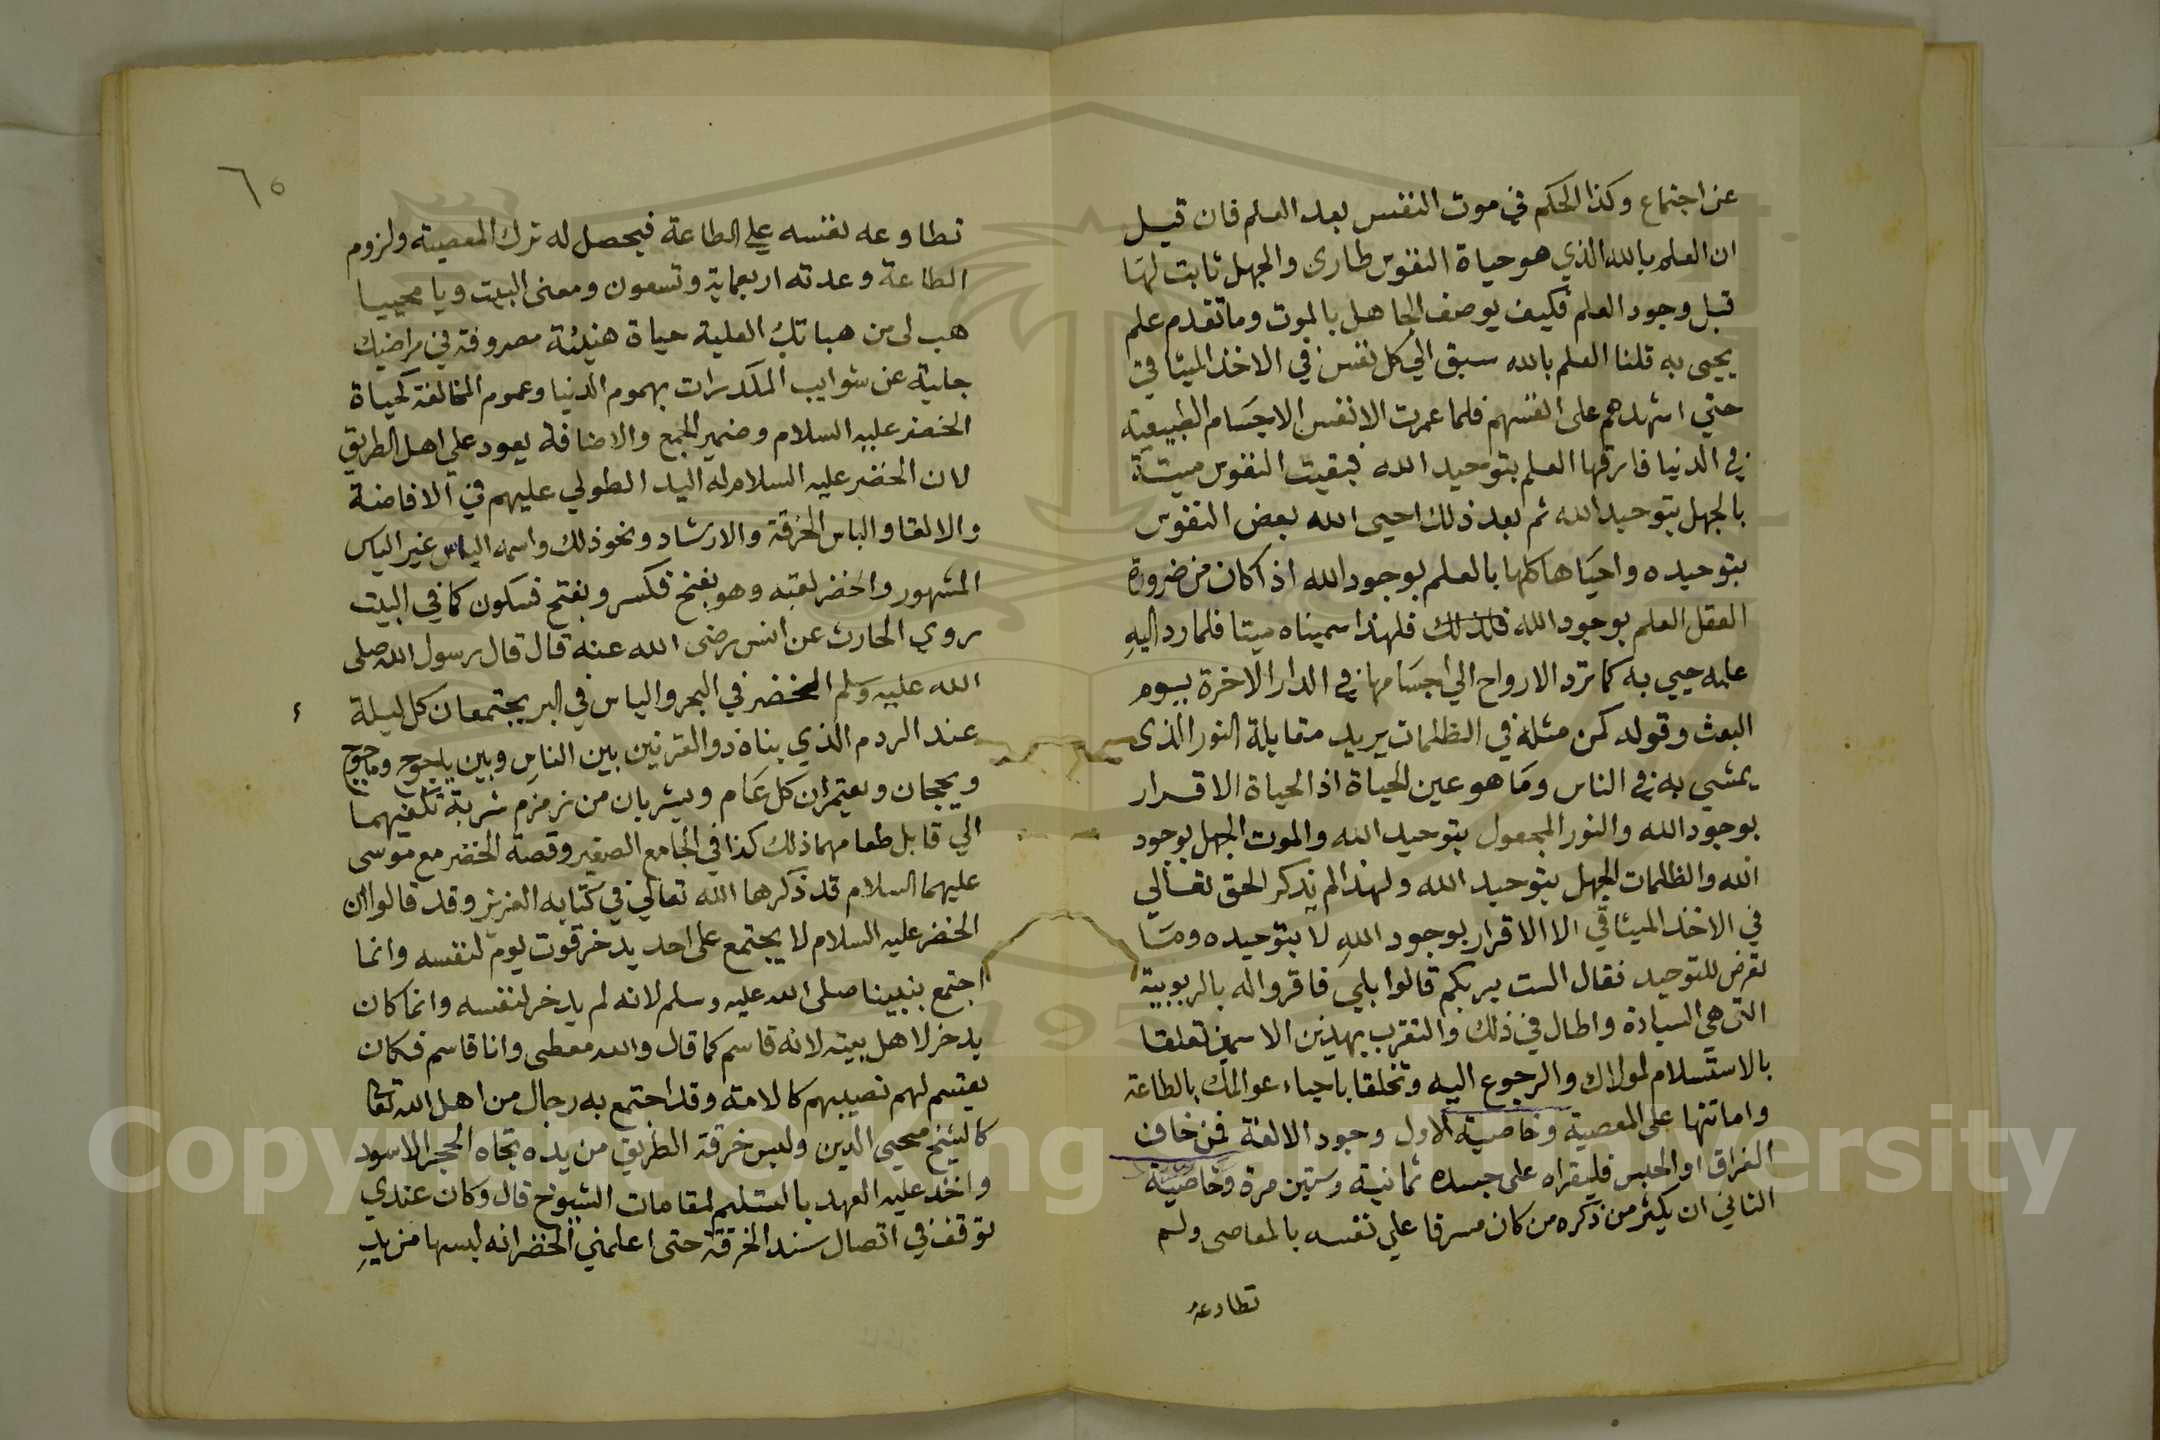 عن اجتماع وكذا الحكم في موت النفس بعد العلم فان قيل
ان العلم بالله الذي هو حياة النفوس طارى والجهل ثابت لها
قبل وجود العلم فكيف يوصف الجاهل بالموت وما تقدم علم
يحيى به قلنا العلم بالله سبق الي كل نفس في الاخذ الميثاقي
حتي اشهدهم على انفسهم فلما عمرت الانفس الاجسام الطبيعية
في الدنيا فارقها العلم بتوحيد الله فبقيت النفوس ميتة
بالجهل بتوحيد الله ثم بعد ذلك احيى الله بعض النفوس
بتوحيده واحياها كلها بالعلم بوجود الله اذ اكان من ضرورة
العقل العلم بوجود الله فلذلك فلهذا سميناه ميتا فلما رد اليه
علمه حيي به كما ترد الارواح الي اجسامها في الدار الاخرة بيوم
البعث وقوله كمن مثله في الظلمات يريد مقابلة النور الذى
يمشي به في الناس وما هو عين الحياة اذ الحياة الاقرار
بوجود الله والنور المجعول بتوحيد الله والموت الجهل بوجود
الله والظلمات الجهل بتوحيد الله ولهذا لم يذكر الحق تعالي
في الاخذ الميثاقي الا الاقرار بوجود الله لا بتوحيده وما
تعرض للتوحيد فقال الست بربكم قالوا بلي فاقروا له بالربوبية
التى هي السيادة واطال في ذلك والتقرب بهذين الاسمين تعلقا
بالاستسلام لمولاك والرجوع اليه وتخلقا باحياء عوالمك بالطاعة
واماتتها على المعصية وخاصية الاول وجود الالفة فمن خاف
الفراق او الحبس فليقراه على جسده ثمانية وستين مرة وخاصية
الثاني ان يكثر من ذكره من كان مسرفا علي نفسه بالمعاصى ولم
تطاوعه
٦٥
تطاوعه نفسه علي الطاعة فيحصل له ترك المعصية ولزوم
الطاعة وعدته اربعماية وتسعون ومعنى البيت ويا محييا
هب لى من هباتك العلية حياة هنيئة مصروفة في مراضيك
جلية عن شوايب المكدرات بهموم الدنيا وعموم المخالفة كحياة
الخضر عليه السلام وضمير الجمع والاضافة يعود علي اهل الطريق
لان الخضر عليه السلام له اليد الطولي عليهم في الافاضة
والالقا والباس الخرقة والارشاد ونحو ذلك واسمه الياس غير الياس
المشهور والخضر لقبه وهو بفتح فكسر وبفتح فسكون كما في البيت
روي الحارث عن انس رضى الله عنه قال قال رسول الله صلى
الله عليه وسلم الخضر في البحر والياس في البر يجتمعان كل ليلة
عند الردم الذي بناه ذو القرنين بين الناس وبين ياجوج وماجوج
ويحجان ويعتمران كل عام ويشربان من زمزم شربة تكفيهما
الي قابل طعامهما ذلك كذا في الجامع الصغير وقصة الخضر مع موسى
عليهما السلام قد ذكرها الله تعالي في كتابه العزيز وقد قالوا ان
الخضر عليه السلام لا يجتمع على احد يدخر قوت يوم لنفسه وانما
اجتمع بنبينا صلى الله عليه وسلم لانه لم يدخر لنفسه وانما كان
يدخر لاهل بيته لانه قاسم كما قال والله معطى وانا قاسم فكان
يقسم لهم نصيبهم كالامة وقد اجتمع به رجال من اهل الله تعالى
كالشيخ محيى الدين ولبس خرقة الطريق من يده تجاه الحجر الاسود
واخذ عليه العهد بالتسليم لمقامات الشيوخ قال وكان عندي
توقف في اتصال سند الخرقة حتى اعلمني الخضر انه لبسها من يد
Copyright © King Saud University
1957